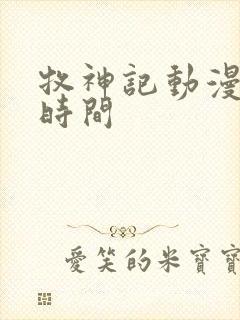 牧神記動漫
時間
愛笑的米寶寶